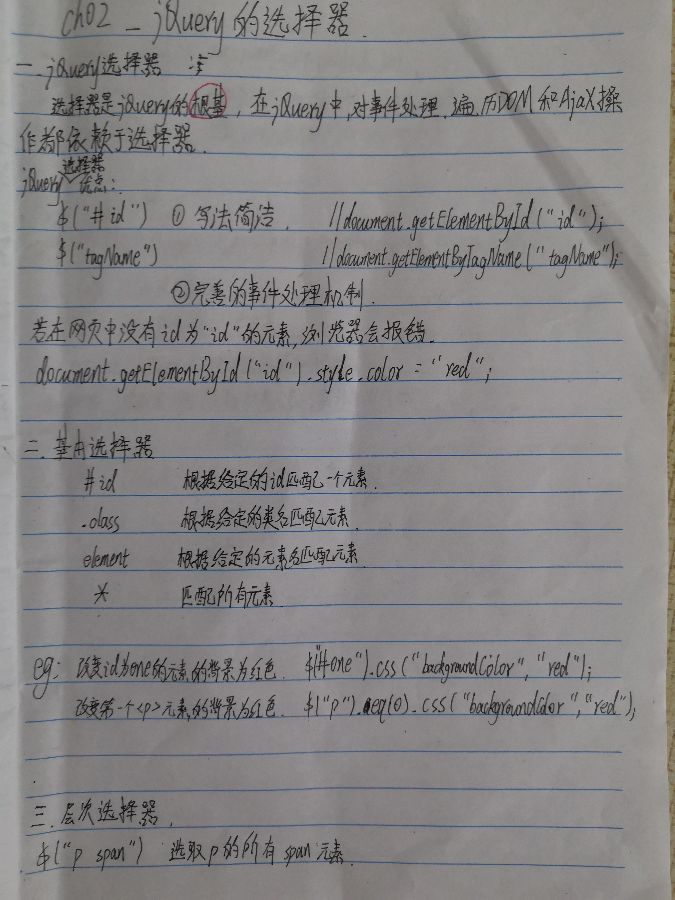 ch02 - jQuery的选择器.
一. jQuery选择器
选择器是jQuery的根基, 在jQuery中, 对事件处理. 遍历DOM和Ajax操
作都依赖于选择器.
jQuery选择器优点:
$("#id") ① 写法简洁. //document.getElementById("id");
$("tagName") //document.getElementByTagName("tagName");
②完善的事件处理机制.
若在网页中没有id为"id"的元素, 浏览器会报错.
document.getElementById("id").style.color = "red";
二. 基本选择器
#id 根据给定的id匹配一个元素.
.class 根据给定的类名匹配元素.
element 根据给定的元素名匹配元素
* 匹配所有元素.
eg: 改变id为one的元素的背景为红色. $("#one").css("backgroundColor","red");
改变第一个<p>元素的背景为红色. $("p").eq(0).css("backgroundColor","red");
三. 层次选择器.
$("p span") 选取p的所有span元素.